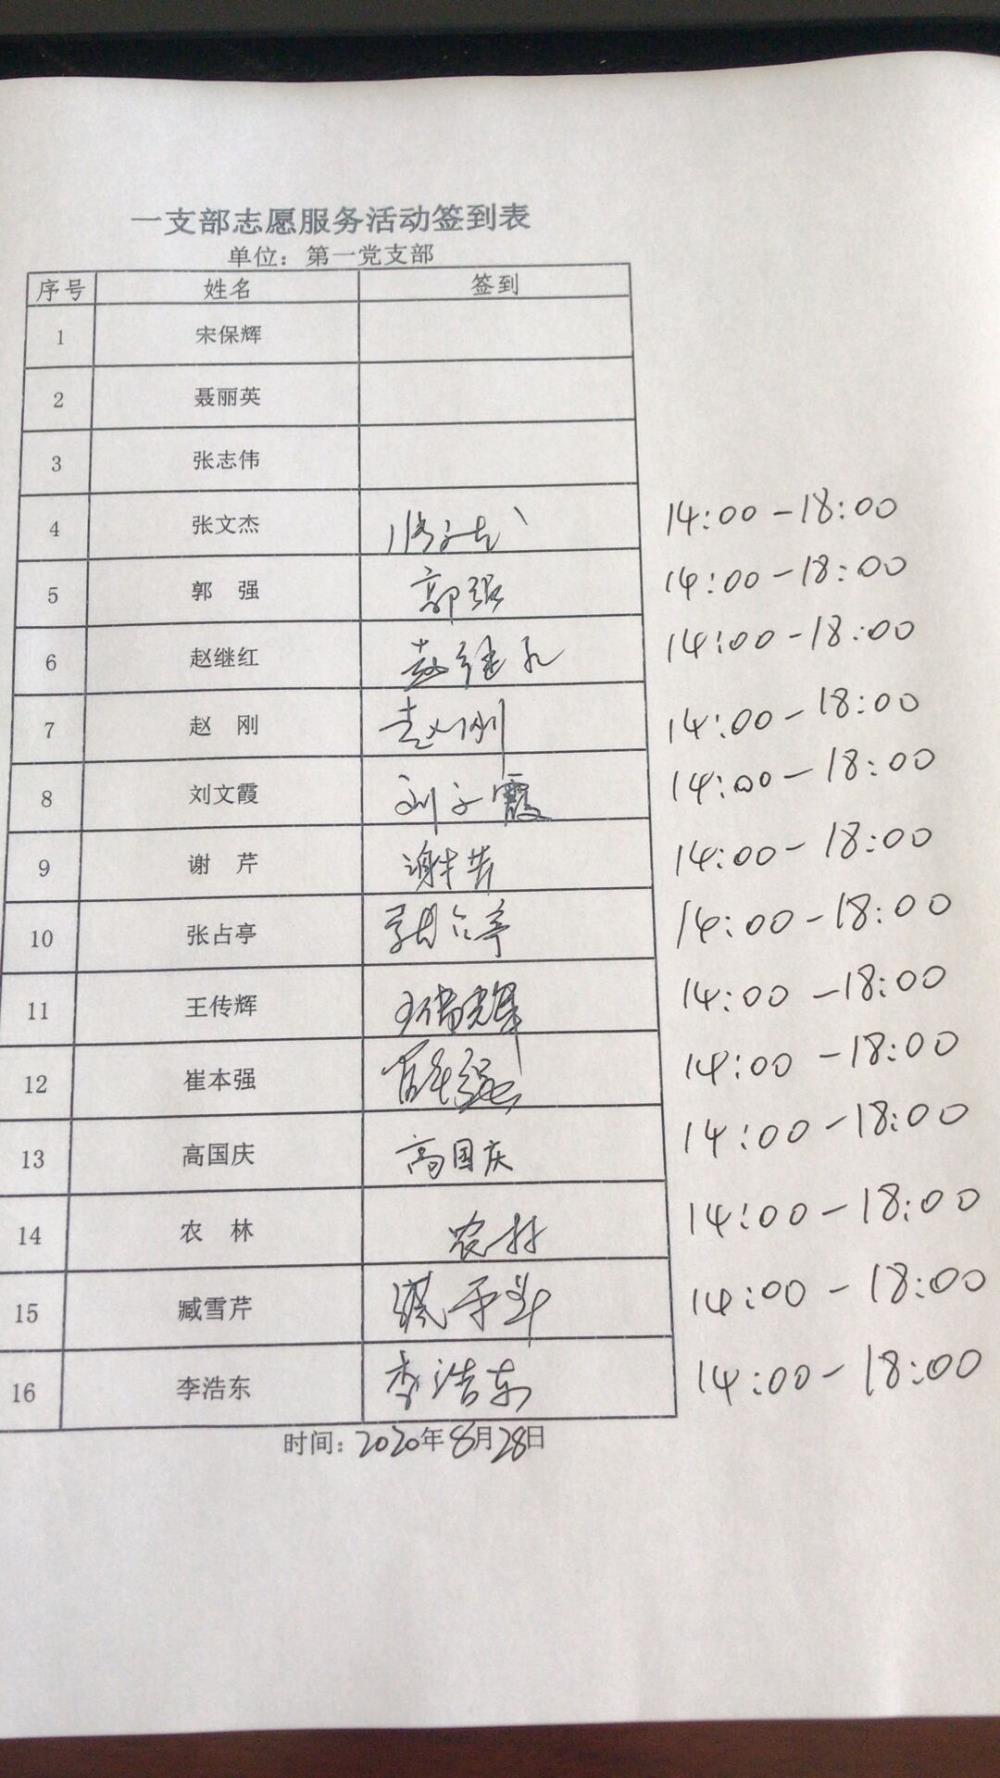 一支部志愿服务活动签到表
单位：第一党支部
序号 姓名 签到
1 宋保辉
2 聂丽英
3 张志伟
4 张文杰 14:00-18:00
5 郭 强 郭强 14:00-18:00
6 赵继红 赵继红 14:00-18:00
7 赵 刚 赵刚 14:00-18:00
8 刘文霞 刘文霞 14:00-18:00
9 谢 芹 谢芹 14:00-18:00
10 张占亭 张占亭 14:00-18:00
11 王传辉 王传辉 14:00-18:00
12 崔本强 崔本强 14:00-18:00
13 高国庆 高国庆 14:00-18:00
14 农 林 农林 14:00-18:00
15 臧雪芹 14:00-18:00
16 李浩东 李浩东 14:00-18:00
时间：2020年8月28日